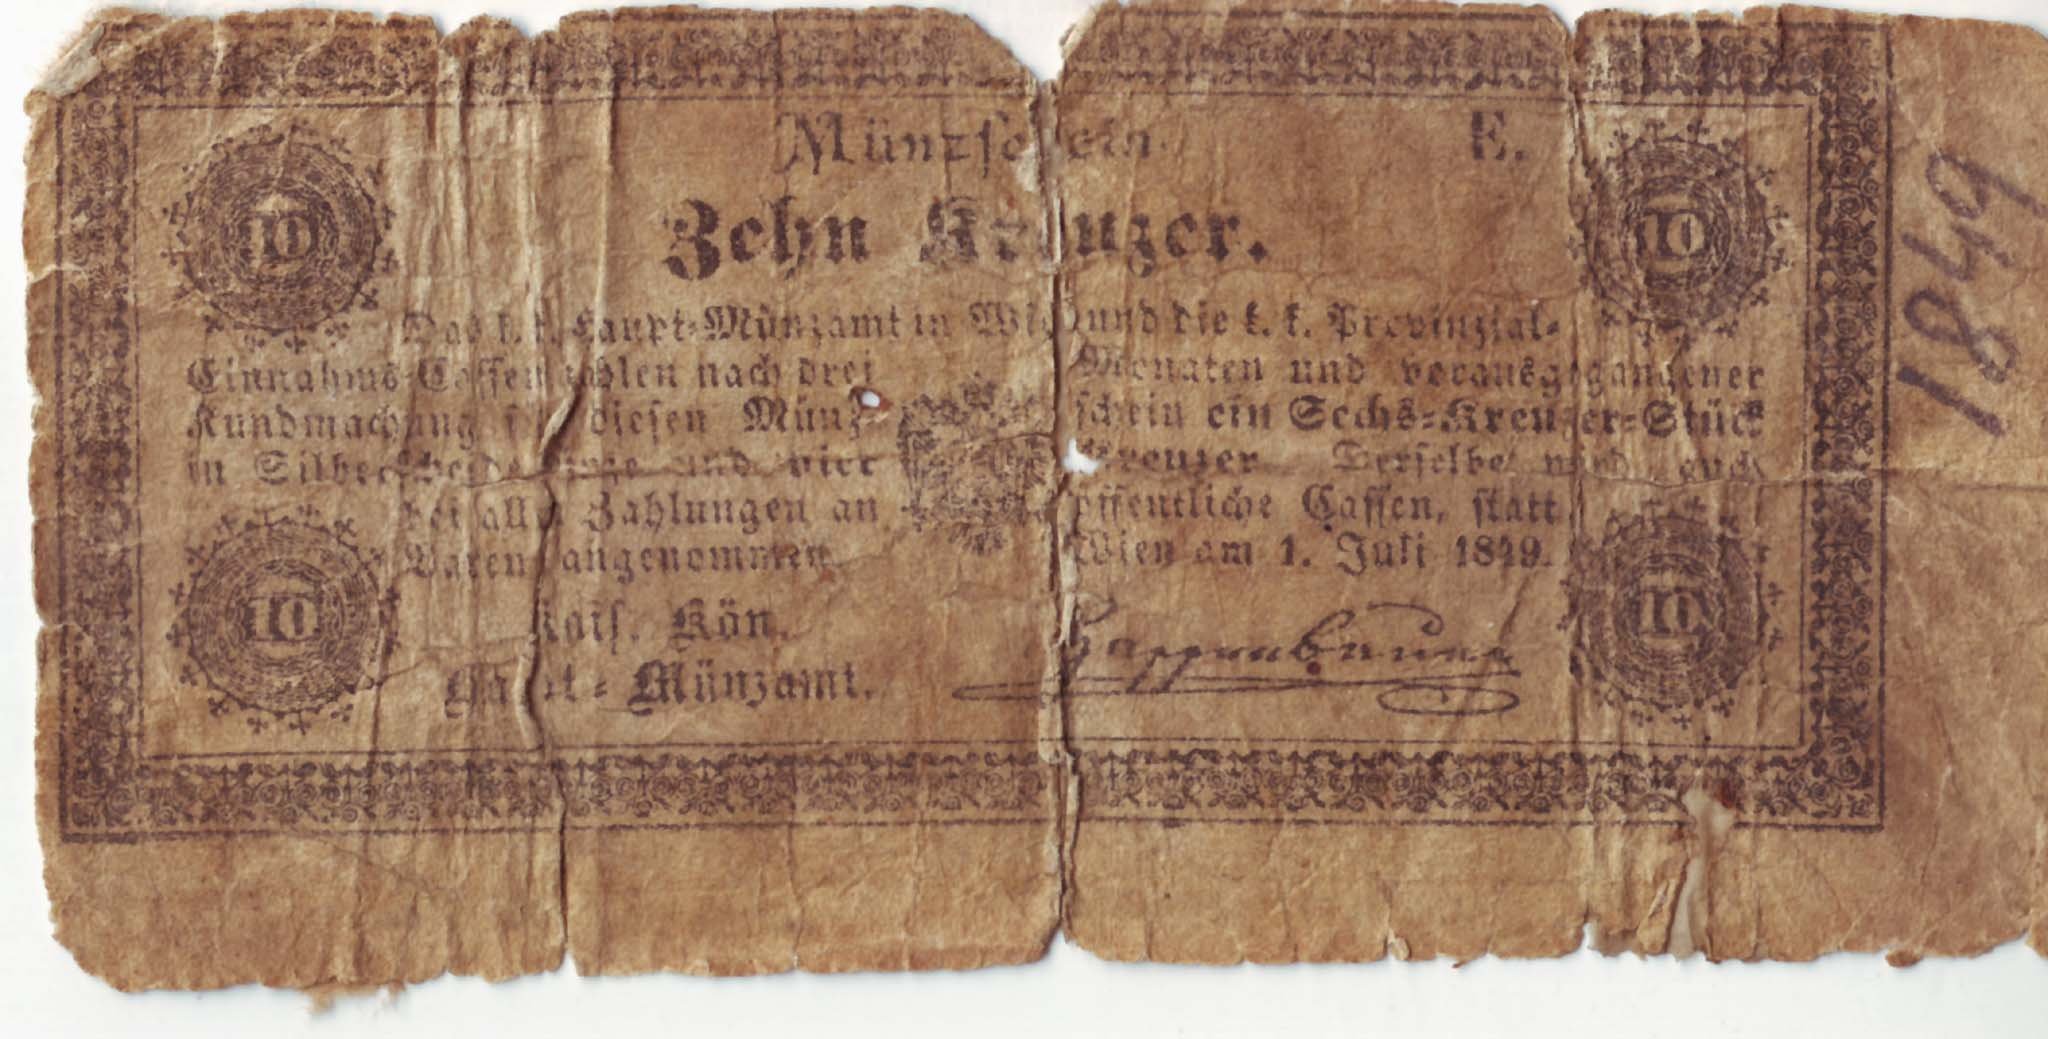 Münzschein E.
Zehn Kreuzer.
10 10
Das k. k. Haupt-Münzamt in Wien und die k. k. Provinzial-
Einnahms-Cassen zahlen nach drei Monaten und vorausgegangener
Kundmachung für diesen Münzschein ein Sechs-Kreuzer-Stück
in Silberscheidemünze und vier Kreuzer. Derselbe wird auch
bei allen Zahlungen an öffentliche Cassen, statt
Baren angenommen. Wien am 1. Juli 1849.
10 10
Kais. Kön.
Haupt-Münzamt.
1849